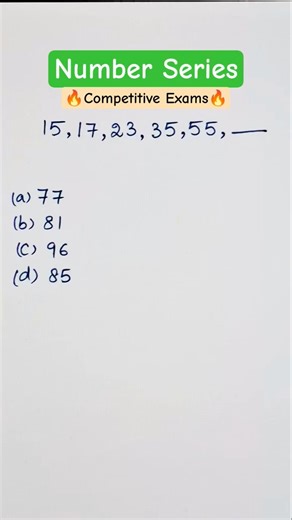 Number Series
🔥Competitive Exams🔥
15, 17, 23, 35, 55, __
(a) 77
(b) 81
(c) 96
(d) 85